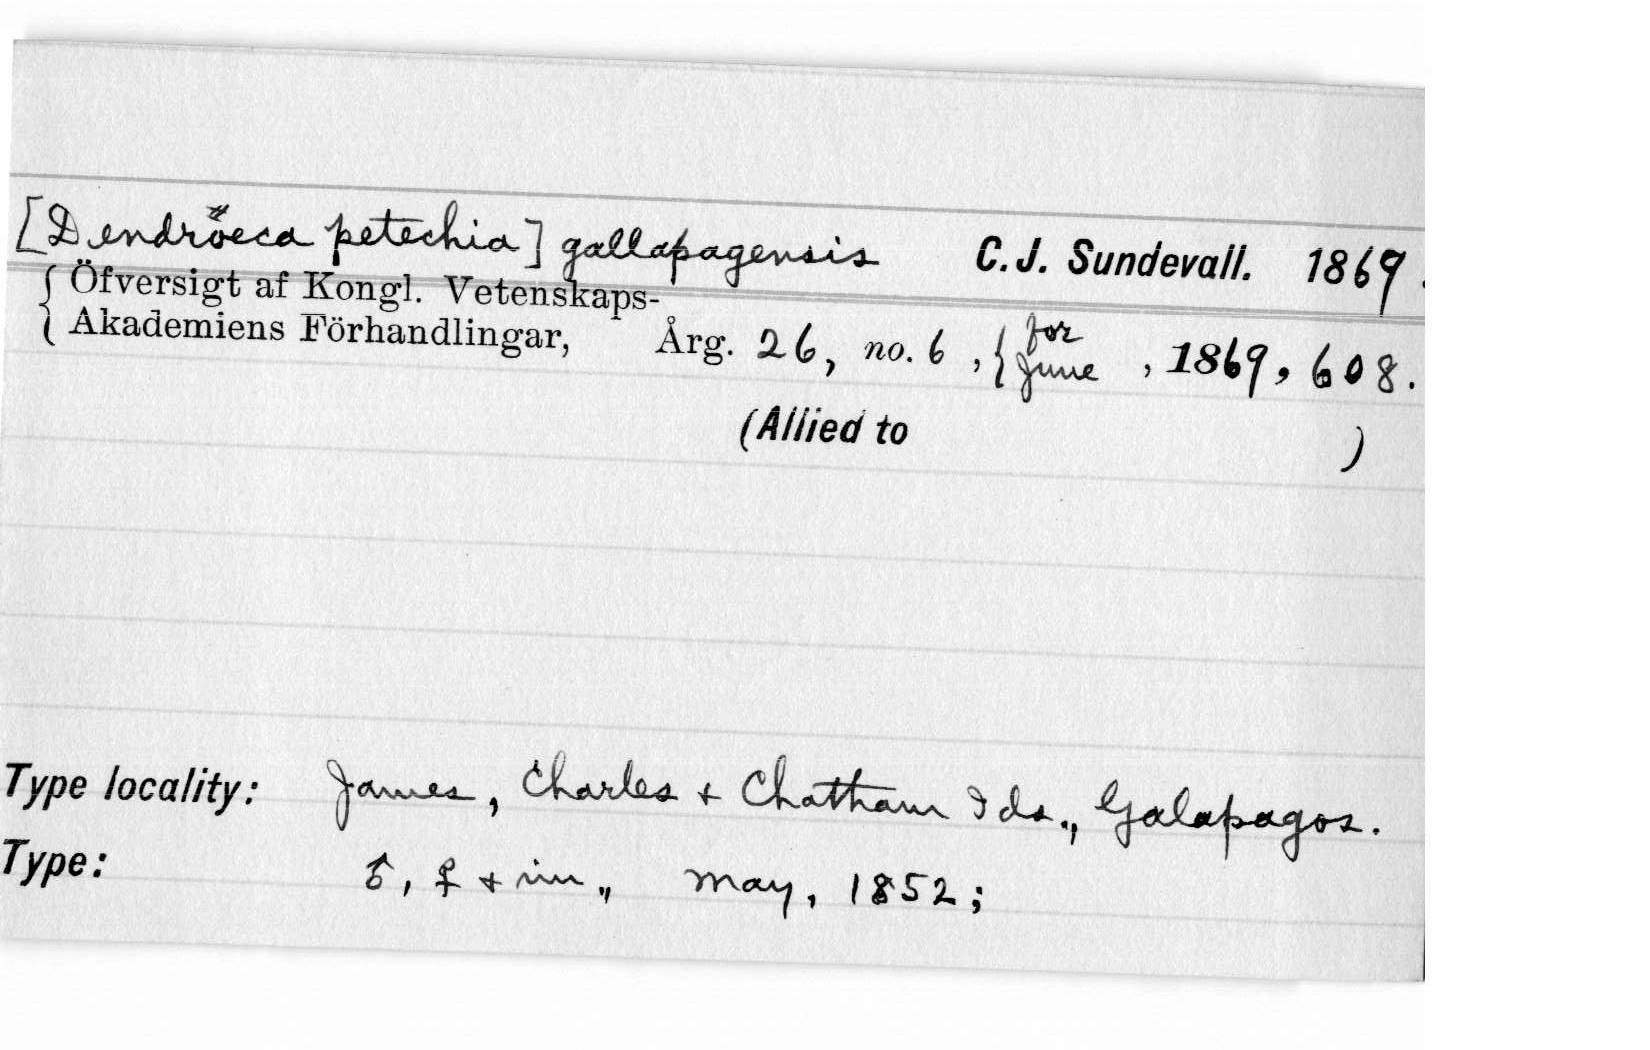 [Dendröeca petechia] gallapagensis C. J. Sundevall. 1869.
{ Öfversigt af Kongl. Vetenskaps-
{ Akademiens Förhandlingar, Årg. 26, no. 6, { for June, 1869, 608.
(Allied to )
Type locality: James, Charles + Chatham Ids., Galapagos.
Type: ♂, ♀ + im., May, 1852;